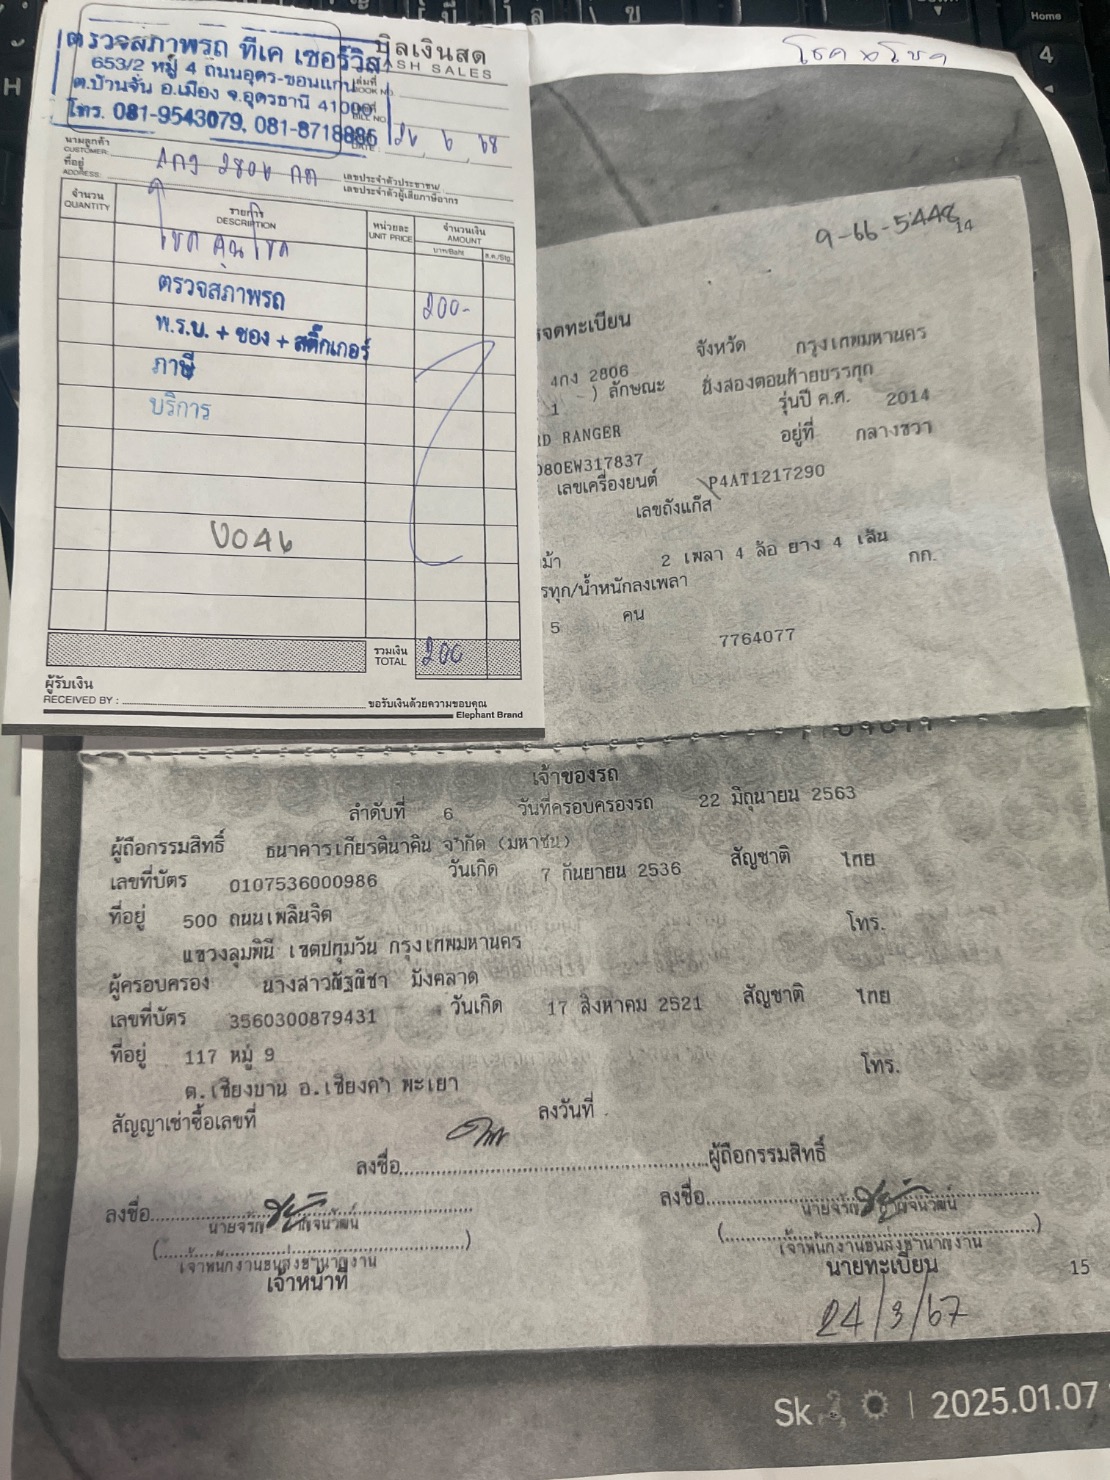 ตรวจสภาพรถ ทีเค เซอร์วิส
653/2 หมู่ 4 ถนนอุดร-ขอนแก่น
ต.บ้านจั่น อ.เมือง จ.อุดรธานี 41000
โทร. 081-9543079, 081-8718886
บิลเงินสด
CASH SALES
เล่มที่
BOOK NO.
BILL NO.
26, 6, 68
นามลูกค้า
CUSTOMER:
4กง 2806 กท
ที่อยู่
ADDRESS:
เลขประจำตัวประชาชน/
เลขประจำตัวผู้เสียภาษีอากร
จำนวน
QUANTITY
รายการ
DESCRIPTION
หน่วยละ
UNIT PRICE
จำนวนเงิน
AMOUNT
บาท/Baht
ส.ต./Stg.
โชค คูณ โชค
ตรวจสภาพรถ 200-
พ.ร.บ. + ซอง + สติ๊กเกอร์
ภาษี
บริการ
รวมเงิน
TOTAL 200
ผู้รับเงิน
RECEIVED BY :
ขอรับเงินด้วยความขอบคุณ
Elephant Brand
โชค x โชค
9-66-5448
14
จดทะเบียน
4กง 2806 จังหวัด กรุงเทพมหานคร
1 ) ลักษณะ นั่งสองตอนท้ายบรรทุก
RD RANGER รุ่นปี ค.ศ. 2014
080EW317837 อยู่ที่ กลางขวา
เลขเครื่องยนต์ P4AT1217290
เลขถังแก๊ส
ม้า 2 เพลา 4 ล้อ ยาง 4 เส้น
รทุก/น้ำหนักลงเพลา กก.
5 คน
7764077
เจ้าของรถ
ลำดับที่ 6 วันที่ครอบครองรถ 22 มิถุนายน 2563
ผู้ถือกรรมสิทธิ์ ธนาคารเกียรตินาคิน จำกัด (มหาชน)
เลขที่บัตร 0107536000986 วันเกิด 7 กันยายน 2536 สัญชาติ ไทย
ที่อยู่ 500 ถนนเพลินจิต โทร.
แขวงลุมพินี เขตปทุมวัน กรุงเทพมหานคร
ผู้ครอบครอง นางสาวณัฐณิชา มังคลาด
เลขที่บัตร 3560300879431 วันเกิด 17 สิงหาคม 2521 สัญชาติ ไทย
ที่อยู่ 117 หมู่ 9 โทร.
ต.เชียงบาน อ.เชียงคำ พะเยา
สัญญาเช่าซื้อเลขที่ ลงวันที่
ลงชื่อ ผู้ถือกรรมสิทธิ์
ลงชื่อ ลงชื่อ
เจ้าพนักงานขนส่งชำนาญงาน เจ้าพนักงานขนส่งชำนาญงาน
เจ้าหน้าที่ นายทะเบียน
15
24/3/67
2025.01.07
Home
4
H